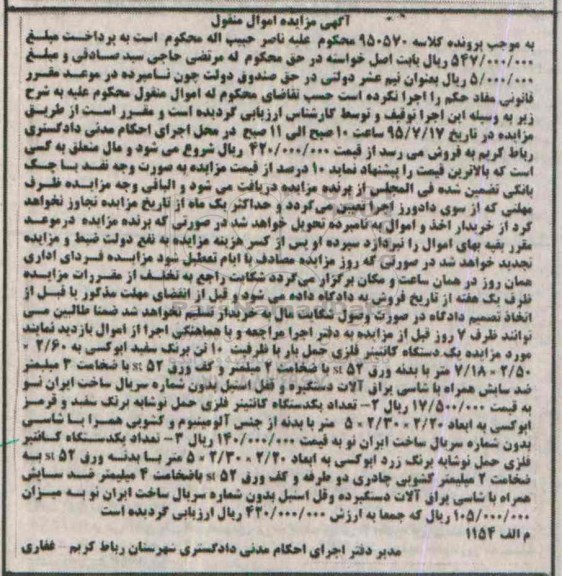 آگهی مزایده اموال منقول
به موجب پرونده کلاسه ۹۵۰۵۷۰ محکوم علیه ناصر حبیب اله محکوم است به پرداخت مبلغ
۵۴۷/۰۰۰/۰۰۰ ریال بابت اصل خواسته در حق محکوم له مرتضی حاجی سید صادقی و مبلغ
۵/۰۰۰/۰۰۰ ریال بعنوان نیم عشر دولتی در حق صندوق دولت چون نامبرده در موعد مقرر
قانونی مفاد حکم را اجرا نکرده است حسب تقاضای محکوم له اموال منقول محکوم علیه به شرح
زیر به وسیله این اجرا توقیف و توسط کارشناس ارزیابی گردیده است و مقرر است از طریق
مزایده در تاریخ ۹۵/۷/۱۷ ساعت ۱۰ صبح الی ۱۱ صبح در محل اجرای احکام مدنی دادگستری
رباط کریم به فروش می رسد از قیمت ۴۲۰/۰۰۰/۰۰۰ ریال شروع می شود و مال متعلق به کسی
است که بالاترین قیمت را پیشنهاد نماید ۱۰ درصد از قیمت مزایده به صورت وجه نقد یا چک
بانکی تضمین شده فی المجلس از برنده مزایده دریافت می شود و الباقی وجه مزایده ظرف
مهلتی که از سوی دادورز اجرا تعیین می گردد و حداکثر یک ماه از تاریخ مزایده تجاوز نخواهد
کرد از خریدار اخذ و اموال به نامبرده تحویل خواهد شد در صورتی که برنده مزایده درموعد
مقرر بقیه بهای اموال را نپردازد سپرده او پس از کسر هزینه مزایده به نفع دولت ضبط و مزایده
تجدید خواهد شد در صورتی که روز مزایده مصادف با ایام تعطیل شود مزایده فردای اداری
همان روز در همان ساعت و مکان برگزار می گردد شکایت راجع به تخلف از مقررات مزایده
ظرف یک هفته از تاریخ فروش به دادگاه داده می شود و قبل از انقضای مهلت مذکور یا قبل از
اتخاذ تصمیم دادگاه در صورت وصول شکایت مال به خریدار تسلیم نخواهد شد ضمنا طالبین می
توانند ظرف ۷ روز قبل از مزایده به دفتر اجرا مراجعه و با هماهنگی اجرا از اموال بازدید نمایند
مورد مزایده یک دستگاه کانتینر فلزی حمل بار با ظرفیت ۱۰ تن برنگ سفید اپوکسی به ۲/۶۰ *
۲/۵۰ * ۷/۱۸ متر با بدنه ورق st ۵۲ با ضخامت ۲ میلمتر و کف ورق st ۵۲ با ضخامت ۳ میلیمتر
ضد سایش همراه با شاسی یراق آلات دستگیره و قفل استیل بدون شماره سریال ساخت ایران نو
به قیمت ۱۷/۵۰۰/۰۰۰ ریال ۲- تعداد یکدستگاه کانتینر فلزی حمل نوشابه برنگ سفید و قرمز
اپوکسی به ابعاد ۲/۲۰ * ۲/۳۰ * ۵ متر با بدنه از جنس آلومینیوم و کشویی همرا با شاسی
بدون شماره سریال ساخت ایران نو به قیمت ۱۴۰/۰۰۰/۰۰۰ ریال ۳- تعداد یکدستگاه کانتیر
فلزی حمل نوشابه برنگ زرد اپوکسی به ابعاد ۲/۲۰ * ۲/۳۰ * ۵ متر با بدنه ورق st ۵۲ به
ضخامت ۲ میلیمتر کشویی چادری دو طرفه و کف ورق st ۵۲ باضخامت ۴ میلیمتر ضد سایش
همراه با شاسی یراق آلات دستگیرده وقل استیل بدون شماره سریال ساخت ایران نو به میزان
۱۰۵/۰۰۰/۰۰۰ ریال که جمعا به ارزش ۴۲۰/۰۰۰/۰۰۰ ریال ارزیابی گردیده است
م الف ۱۱۵۴
مدیر دفتر اجرای احکام مدنی دادگستری شهرستان رباط کریم - غفاری